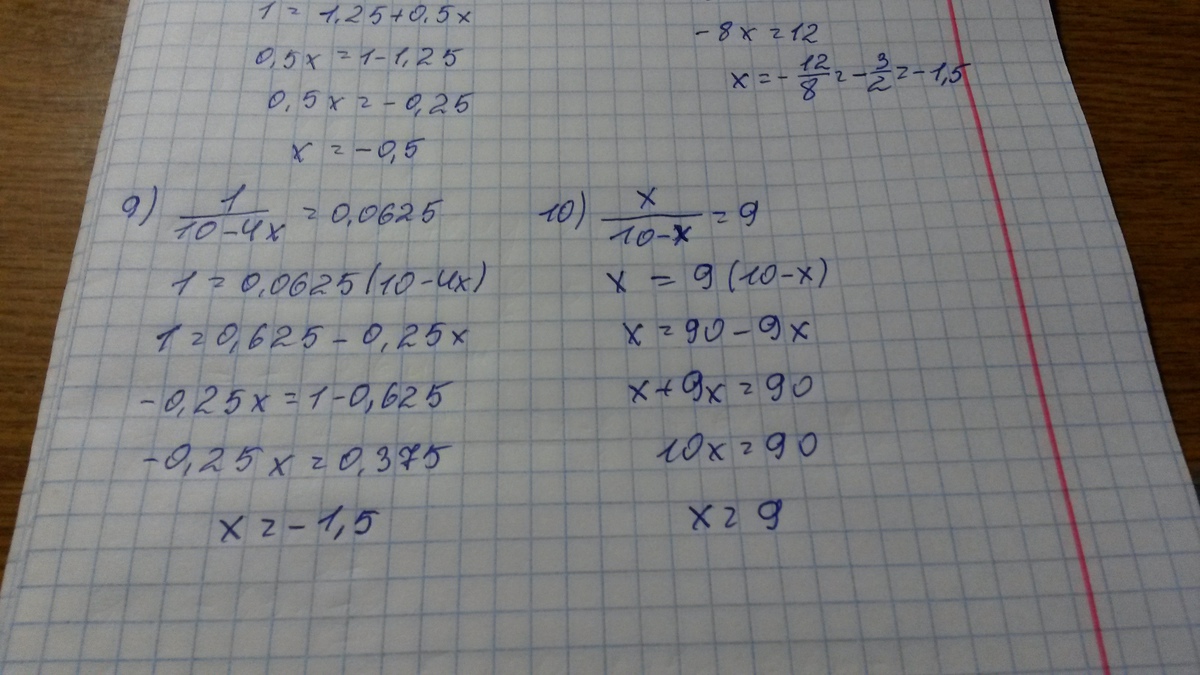 1 = 1,25+0,5x
0,5x = 1-1,25
0,5x = -0,25
x = -0,5
-8x = 12
x = -12/8 = -3/2 = -1,5
9) 1/(10-4x) = 0,0625
1 = 0,0625(10-4x)
1 = 0,625 - 0,25x
-0,25x = 1-0,625
-0,25x = 0,375
x = -1,5
10) x/(10-x) = 9
x = 9(10-x)
x = 90-9x
x+9x = 90
10x = 90
x = 9